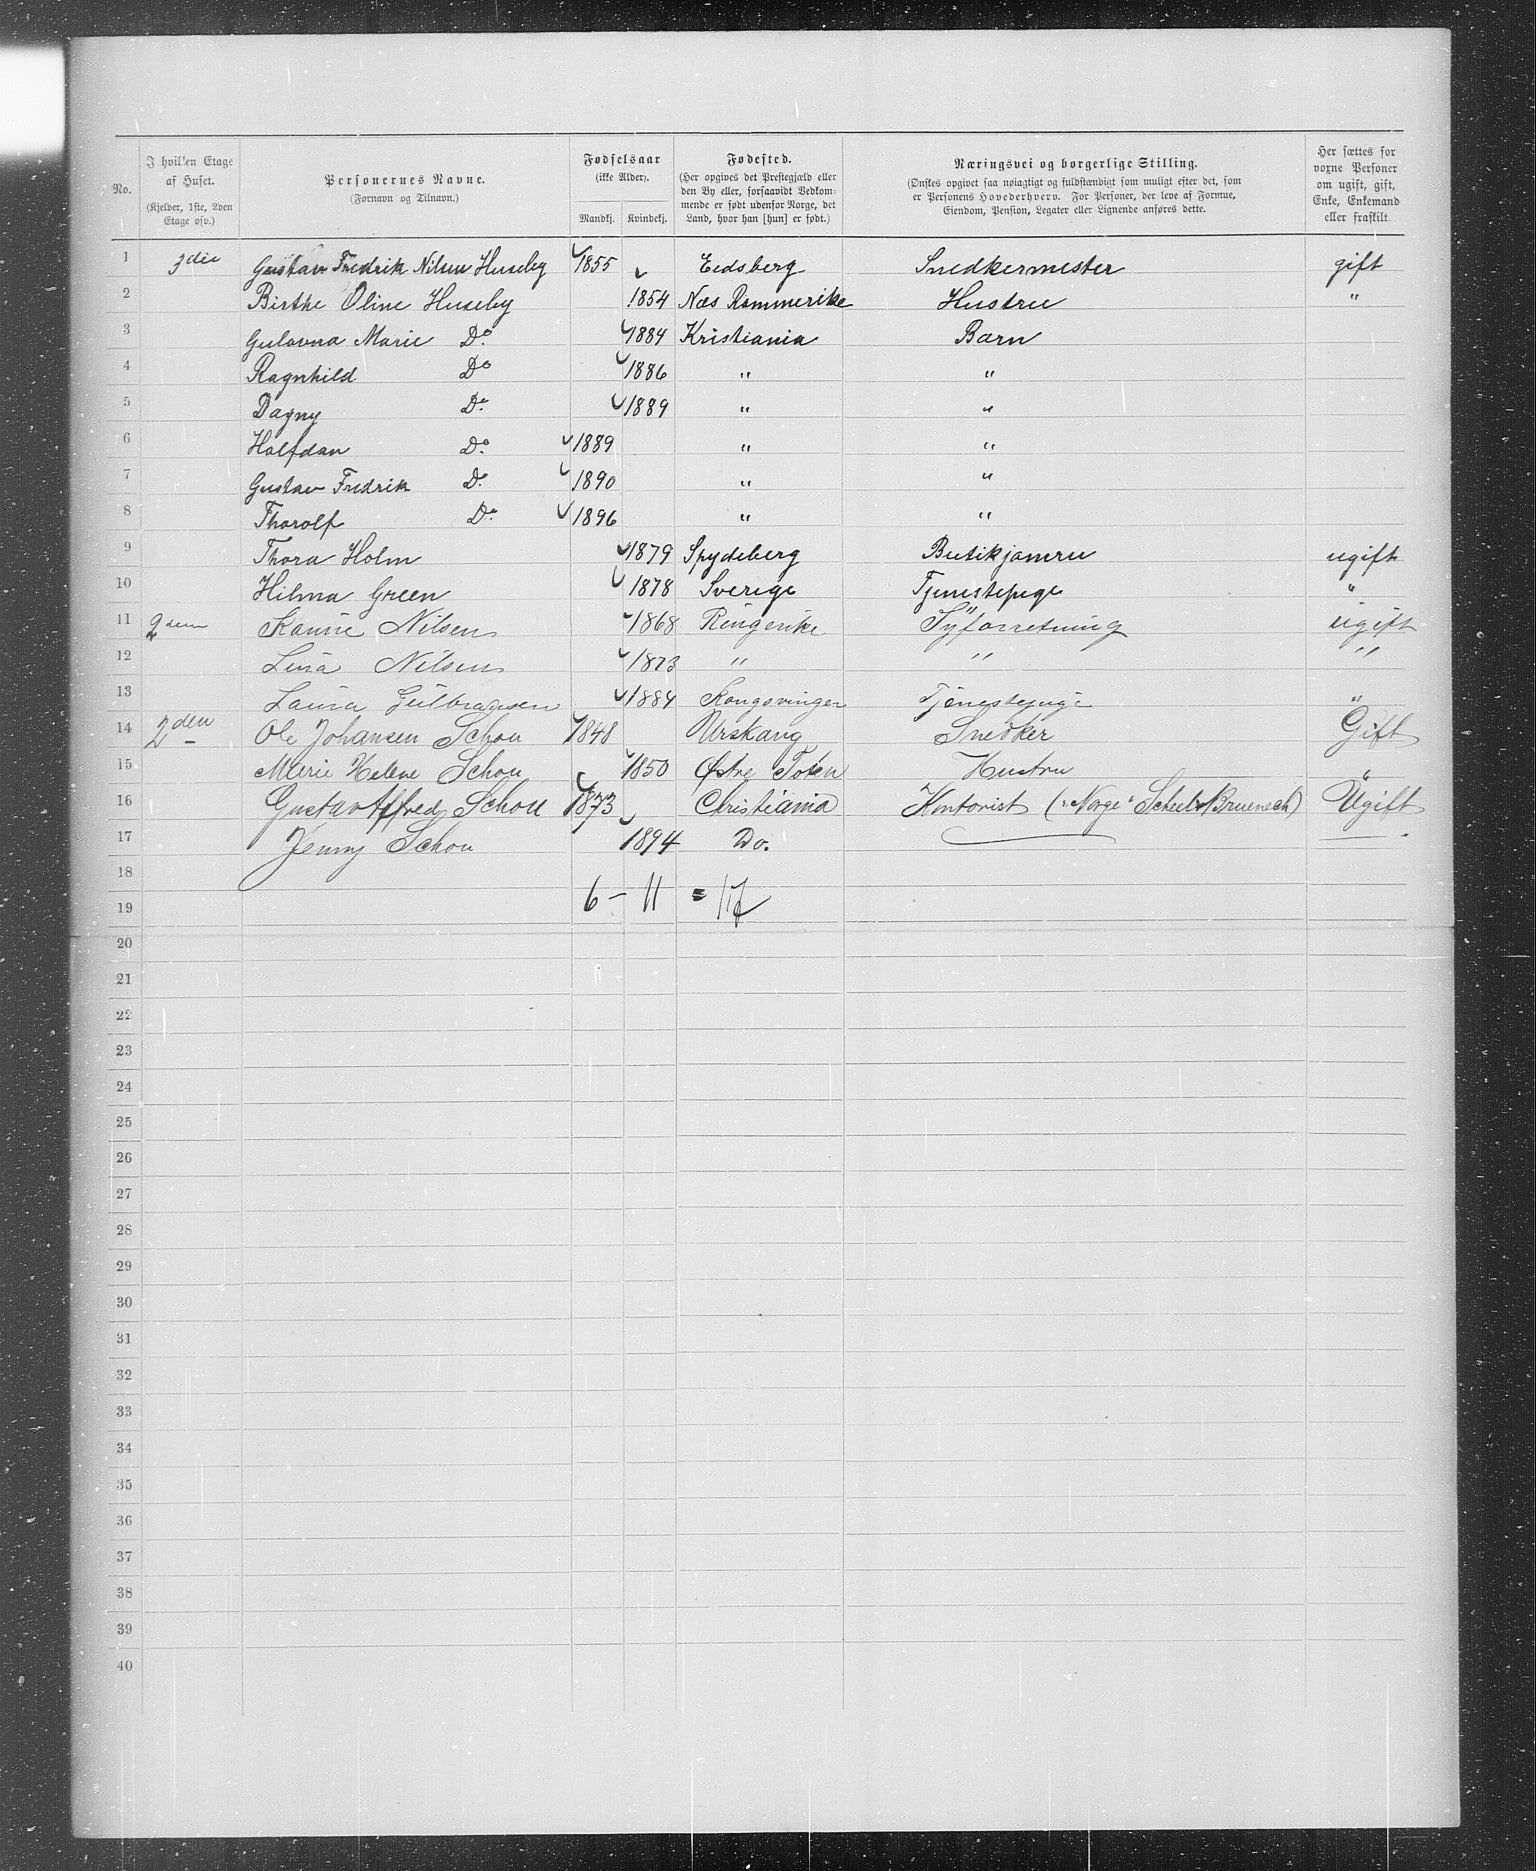 No. | I hvilken Etage af Huset. (Kjelder, 1ste, 2den Etage osv.) | Personernes Navne. (Fornavn og Tilnavn.) | Fødselsaar (ikke Alder). Mandkj. Kvindekj. | Fødested. (Her opgives det Prestegjæld eller den By eller, forsaavidt Vedkommende er født udenfor Norge, det Land, hvor han [hun] er født.) | Næringsvei og borgerlige Stilling. (Ønskes opgivet saa nøiagtigt og fuldstændigt som muligt efter det, som er Personens Hovederhverv. For Personer, der leve af Formue, Eiendom, Pension, Legater eller Lignende anføres dette. | Her sættes for voxne Personer om ugift, gift, Enke, Enkemand eller fraskilt.
1 3die Gustav Fredrik Nilsen Huseby 1855 Eidsberg Snedkermester gift
2 Birthe Oline Huseby 1854 Næs Rommerike Hustru "
3 Gulovna Marie Do. 1884 Kristiania Barn
4 Ragnhild Do 1886 " "
5 Dagny Do. 1889 " "
6 Halfdan Do. 1889 " "
7 Gustav Fredrik Do. 1890 " "
8 Thorolf Do. 1896 " "
9 Thora Holm 1879 Spydeberg Butikjomfru ugift
10 Hilma Green 1878 Sverige Tjenestepige "
11 2den Nilsen 1868 Ringerike Syforretning ugift
12 Lina Nilsen 1873 " " "
13 Laura Gulbrandsen 1884 Kongsvinger Tjenestepige "
14 2den Ole Johansen Schou 1848 Urskaug Snedker Gift
15 Marie Helene Schou 1850 Østre Toten Hustru "
16 Gustav Alfred Schou 1873 Christiania Kontorist ("Norge" Bruenech) Ugift
17 Jenny Schou 1894 Do.
18
19 6 – 11 = 17
20
21
22
23
24
25
26
27
28
29
30
31
32
33
34
35
36
37
38
39
40